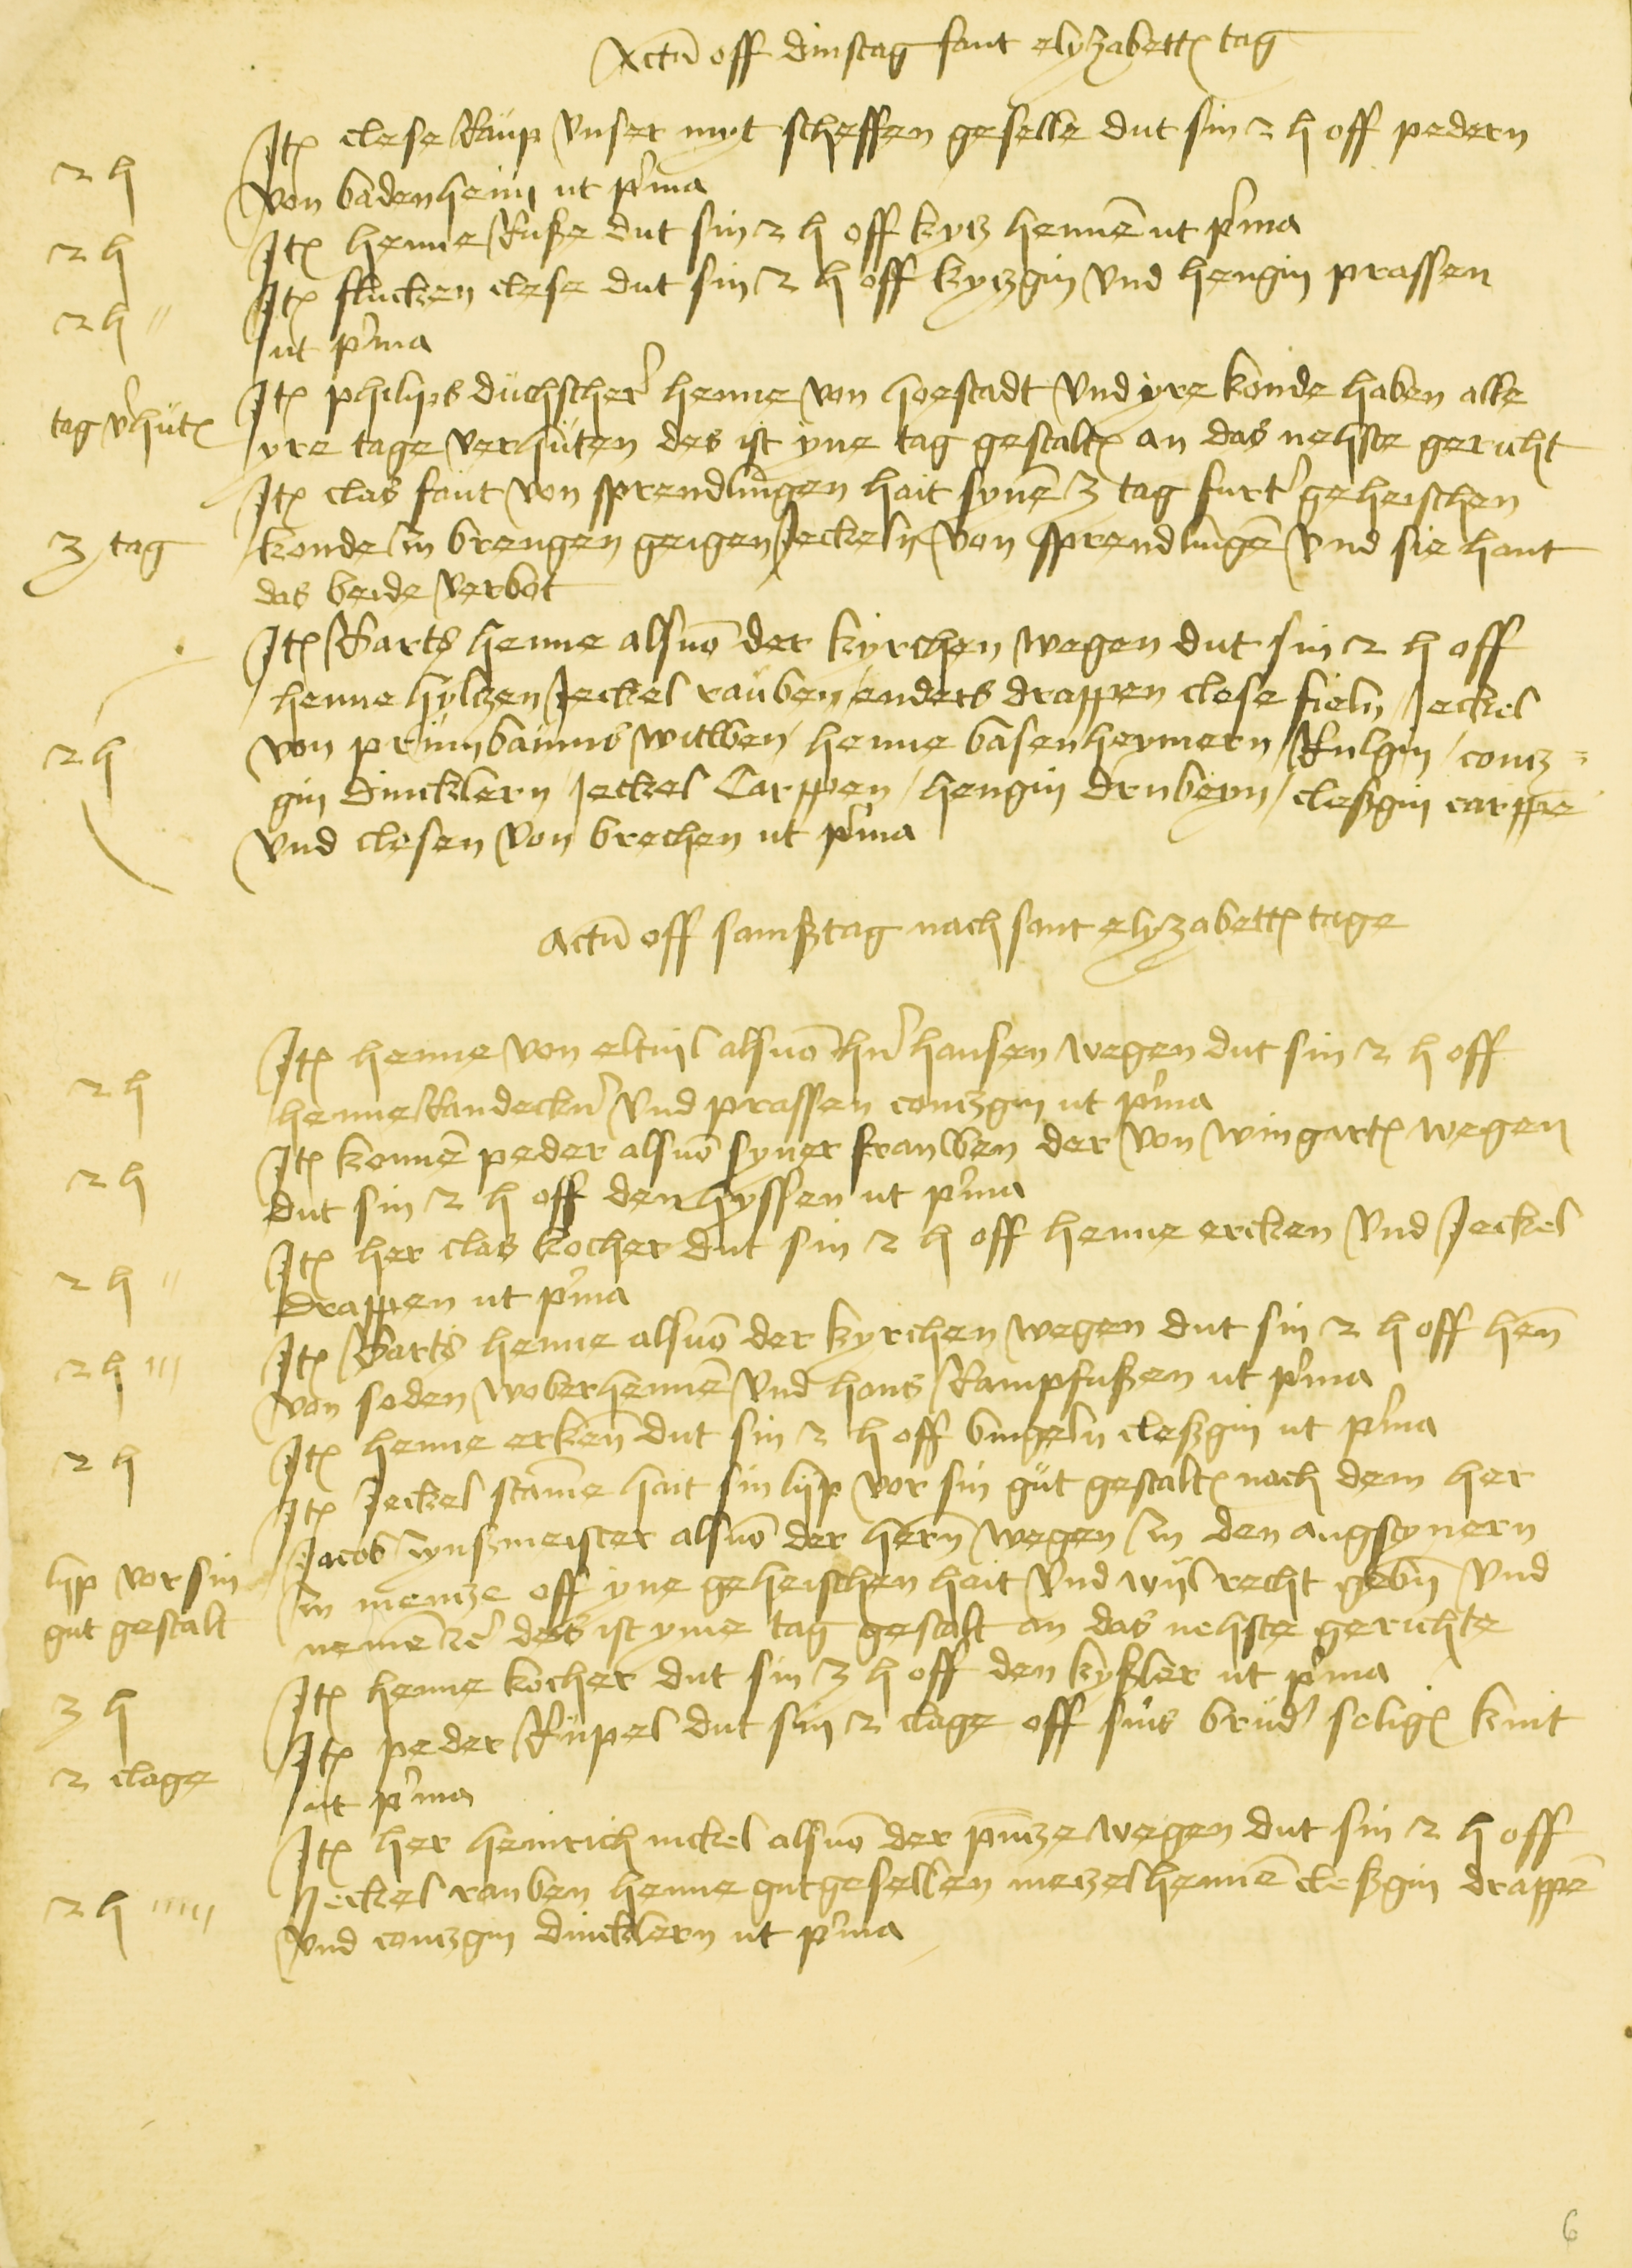 Actu off dinstag sant elyzabettꝭ tag
2 h
Itꝭ clese Raup unser myt scheffen geselle dut sin 2 h off pedern
von badenheim ut p'ma
2 h
Itꝭ henne Ruße dut sin 2 h off kytz hennē ut p'ma
2 h "
Itꝭ flucken clese dut sin 2 h off kytzgin und hengin prassen
ut p'ma
tag v'hutꝭ
Itꝭ philips duchscher' henne von hoestadt und yre konde haben alle
yre tage verhuten des ist yne tag gestaltꝭ an das nehste gericht
3 tag
Itꝭ clas faut von sprendlingen hait synē 3 tag furt' geheischen
konde in brengen geigen Jeckeln von sprendlingē und sie hant
das beide verbot
2 h
Itꝭ Barts henne als vō der kyrchen wegen dut sin 2 h off
henne hyltzen Jeckel rauben / enders drappen clese fieln / Jeckel
von prumbaums witwen / henne basenheymern / Rulgin / contz=
gin dincklern / Jeckel Carppen / hengin drubeyn / cleßgin carppē
und clesen von brechen ut p'ma
Actu off samßtag nach sant elyzabettꝭ tage
2 h
Itꝭ henne von eltvil als vō hn' hansen wegen dut sin 2 h off
henne Randeckn' und prassen contzgin ut p'ma
2 h
Itꝭ konnē peder als vō syner frauwen der von wingartꝭ wegen
dut sin 2 h off den hyssen ut p'ma
2 h "
Itꝭ her clas kocher dut sin 2 h off henne ercken und Jeckel
drappen ut p'ma
2 h '''
Itꝭ Barts henne als vō der kyrchen wegen dut sin 2 h off hen̄
von soden woberhennē und hans Rampfußen ut p'ma
2 h
Itꝭ henne erken dut sin 2 h off bingeln cleßgin ut p'ma
lip vor sin
gut gestalt
Itꝭ Jeckel stam̄e hait sin lip vor sin gut gestaltꝭ nach dem her
Jacob zynßmeister als vō der hern̄ wegen zu den augstynern
zu mentze off yne geheischen hait und wil recht gebn̄ und
neme zc' des ist yme tag gestalt an das nehste gerichte
3 h
Itꝭ henne kocher dut sin 3 h off den kyßler ut p'ma
2 clage
Itꝭ peder Rupel dut sin 2 clage off sins brud' seligꝭ kint
ut p'ma
2 h '''''
Itꝭ her heinrich nickel als vō der p̄ntze wegen dut sin 2 h off
Jeckel rauben henne gutgesellen metzelhennē cleßgin drappē
und contzgin dincklern ut p'ma
6